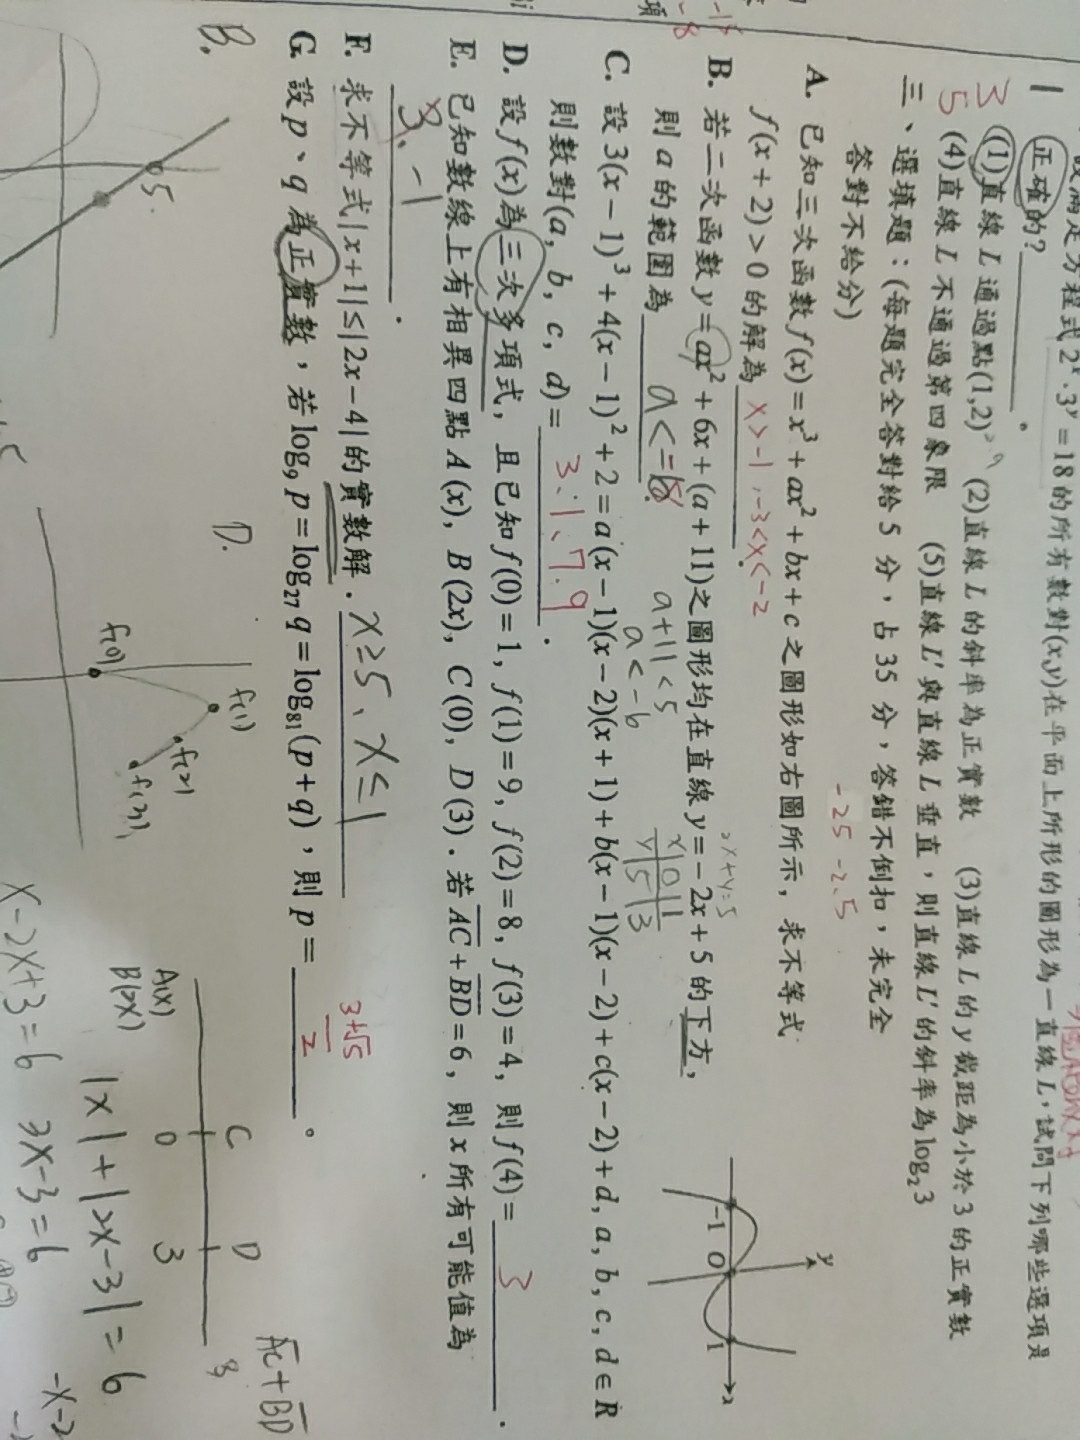 設滿足方程式 2ˣ·3ʸ=18 的所有數對(x,y)在平面上所形的圖形為一直線 L,試問下列哪些選項是
正確的?
(1)直線 L 通過點(1,2) (2)直線 L 的斜率為正實數 (3)直線 L 的 y 截距為小於 3 的正實數
(4)直線 L 不通過第四象限 (5)直線 L′與直線 L 垂直,則直線 L′的斜率為log₂3
3
5
三、選填題:(每題完全答對給 5 分,占 35 分,答錯不倒扣,未完全
答對不給分)
-25 -2.5
A. 已知三次函數 f(x)=x³+ax²+bx+c 之圖形如右圖所示,求不等式
f(x+2)>0 的解為 x>-1,-3<x<-2
y
-1 0 1
x
B. 若二次函數 y=ax²+6x+(a+11)之圖形均在直線 y=-2x+5 的下方,
則 a 的範圍為
a+11<5
a<-6
2x+y=5
x 0 1
y 5 3
C. 設 3(x-1)³+4(x-1)²+2=a(x-1)(x-2)(x+1)+b(x-1)(x-2)+c(x-2)+d, a, b, c, d∈R
則數對(a, b, c, d)= 3、1、7、9 .
D. 設 f(x)為三次多項式, 且已知 f(0)=1, f(1)=9, f(2)=8, f(3)=4, 則 f(4)= 3 .
E. 已知數線上有相異四點 A(x), B(2x), C(0), D(3).若 AC+BD=6, 則 x 所有可能值為
3、-1 .
F. 求不等式|x+1|≤|2x-4|的實數解. x≥5、x≤1
G. 設 p、q 為正實數,若 log₉ p=log₂₇ q=log₈₁(p+q),則 p= 。
3+√5
2
B.
5
D.
f(0)
f(1)
f(2)
f(3)
A(x)
B(2x)
C D
0 3
AC+BD
|x|+|2x-3|=6
x-2x+3=6 3x-3=6